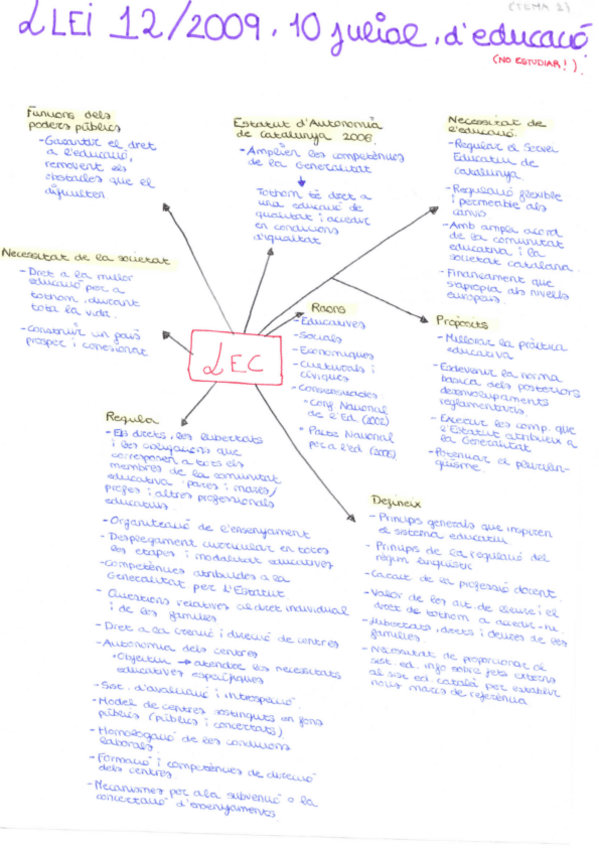 (TEMA 2)
LLEI 12/2009, 10 juliol, d'educació
(NO ESTUDIAR!)
Funcions dels
poders públics
- Garantir el dret
a l'educació,
removent els
obstacles que el
dificulten
Estatut d'Autonomia
de Catalunya 2006
- Amplien les competències
de la Generalitat
Tothom té dret a
una educació de
qualitat i accedir
en condicions
d'igualtat
Necessitat de
l'educació
- Regular el Servei
Educatiu de
Catalunya
- Regulació flexible
i permeable als
canvis
- Amb ampli acord
de la comunitat
educativa i la
societat catalana
- Finançament que
s'apropia als nivells
europeus.
Necessitat de la societat
- Dret a la millor
educació per a
tothom, durant
tota la vida.
- Construir un país
pròsper i cohesionat
Raons
- Educatives
- Socials
- Econòmiques
- Culturals i
cíviques
- Consensuades
• Conf. Nacional
de l'Ed. (2002)
• Pacte Nacional
per a l'Ed (2006)
Propòsits
- Millorar la pràctica
educativa
- Esdevenir la norma
bàsica dels posteriors
desenvolupaments
reglamentaris.
- Exercir les comp. que
l'Estatut atribueix a
la Generalitat
- Potenciar el plurilin-
güisme.
LEC
Regula
- Els drets, les llibertats
i les obligacions que
corresponen a tots els
membres de la comunitat
educativa: pares i mares/
profes i altres professionals
educatius.
- Organització de l'ensenyament
- Desplegament curricular en totes
les etapes i modalitats educatives
- Competències atribuïdes a la
Generalitat per l'Estatut
- Qüestions relatives al dret individual
i de les famílies
- Dret a la creació i direcció de centres
- Autonomia dels centres
• Objectiu → atendre les necessitats
educatives específiques
- Sist. d'avaluació i inspecció
- Model de centres sostinguts en fons
públics (públics i concertats)
- Homologació de les condicions
laborals
- Formació i competències de direcció
dels centres
- Mecanismes per a la subvenció o la
concertació d'ensenyaments
Defineix
- Principis generals que inspiren
el sistema educatiu
- Principis de la regulació del
règim lingüístic
- Caràcter de la professió docent.
- Valor de les act. de lleure i el
dret de tothom a accedir-hi.
- Llibertats, drets i deures de les
famílies
- Necessitat de proporcionar al
sist. ed. info sobre fets externs
al sist ed català per establir
nous marcs de referència